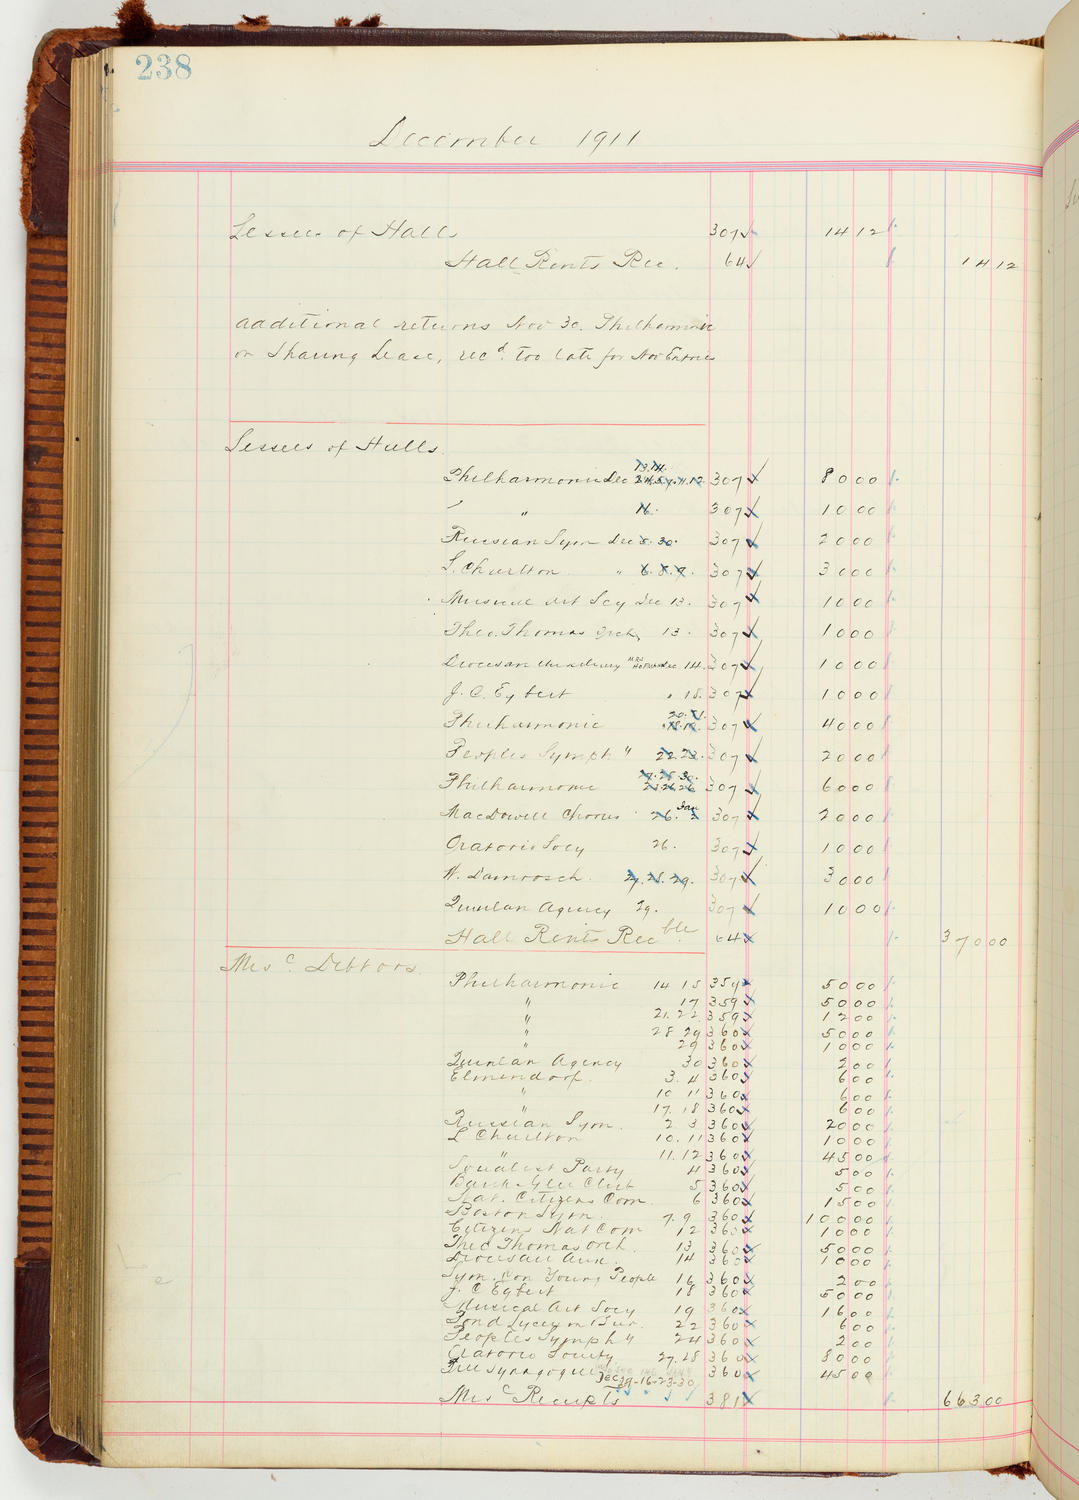 238
December 1911
Lessees of Halls 307 1412
Hall Rents Rec. 64 1412
additional returns Nov 30. Philharmonic
on Sharing Lease, recd. too late for Nov Entries
Lessees of Halls.
13.14.
Philharmonic Dec 307 8000
" " 16. 307 1000
Russian Sym Dec 8. 30. 307 2000
L. Charlton " 6. 8. 9. 307 3000
Musical Art Scy Dec 13. 307 1000
Theo. Thomas Orch, 13. 307 1000
Diocesan Auxiliary Mrs Dec 14. 307 1000
J. C. Egbert " 18. 307 1000
Philharmonic 307 4000
Peoples Symph " 22. 23. 307 2000
Philharmonic 307 6000
MacDowell Chorus 26. Jan 2 307 2000
Oratorio Socy 26. 307 1000
W. Damrosch. 27. 28. 29. 307 3000
Quinlan Agency 29. 307 1000
Hall Rents Recble. 64 37000
Misc. Debtors.
Philharmonic 14 15 359 5000
" 17 359 5000
" 21. 22 359 1200
" 28 29 360 5000
" 29 360 1000
Quinlan Agency 30 360 200
Elmendorf. 3. 4 360 600
" 10 11 360 600
" 17. 18 360 600
Russian Sym. 2 3 360 2000
L Charlton 10. 11 360 1000
" 11. 12 360 4500
Socialist Party 4 360 500
Bank Glee Club 5 360 500
Nat. Citizens Com. 6 360 1500
Boston Sym. 7. 9 360 10000
Citizens Nat Com 12 360 1000
Theo Thomas Orch. 13 360 5000
Diocesan Aux. 14 360 1000
Sym. Con Young People 16 360 200
J. C Egbert 18 360 5000
Musical Art Socy 19 360 1600
Pond Lyceum Bur. 22 360 600
Peoples Symph " 24 360 200
Oratorio Society 27. 28 360 8000
Free Synagogue 360 4500
Misc Receipts 381 66300